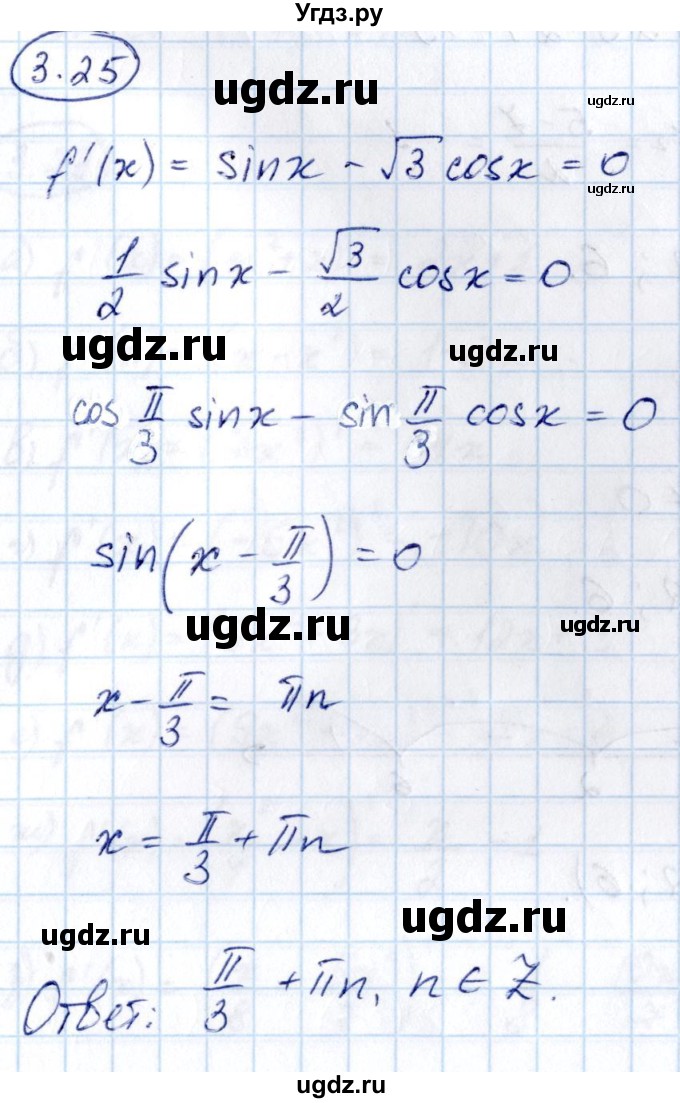 Угдз.ру
3.25
ugdz.ru ugdz.ru
f'(x) = sinx - √3 cosx = 0
ugdz.ru
1/2 sinx - √3/2 cosx = 0
ugdz.ru ugdz.ru
cos π/3 sinx - sin π/3 cosx = 0
sin(x - π/3) = 0
ugdz.ru ugdz.ru
x - π/3 = πn
x = π/3 + πn
ugdz.ru ugdz.ru
Ответ: π/3 + πn, n ∈ Z.
ugdz.ru